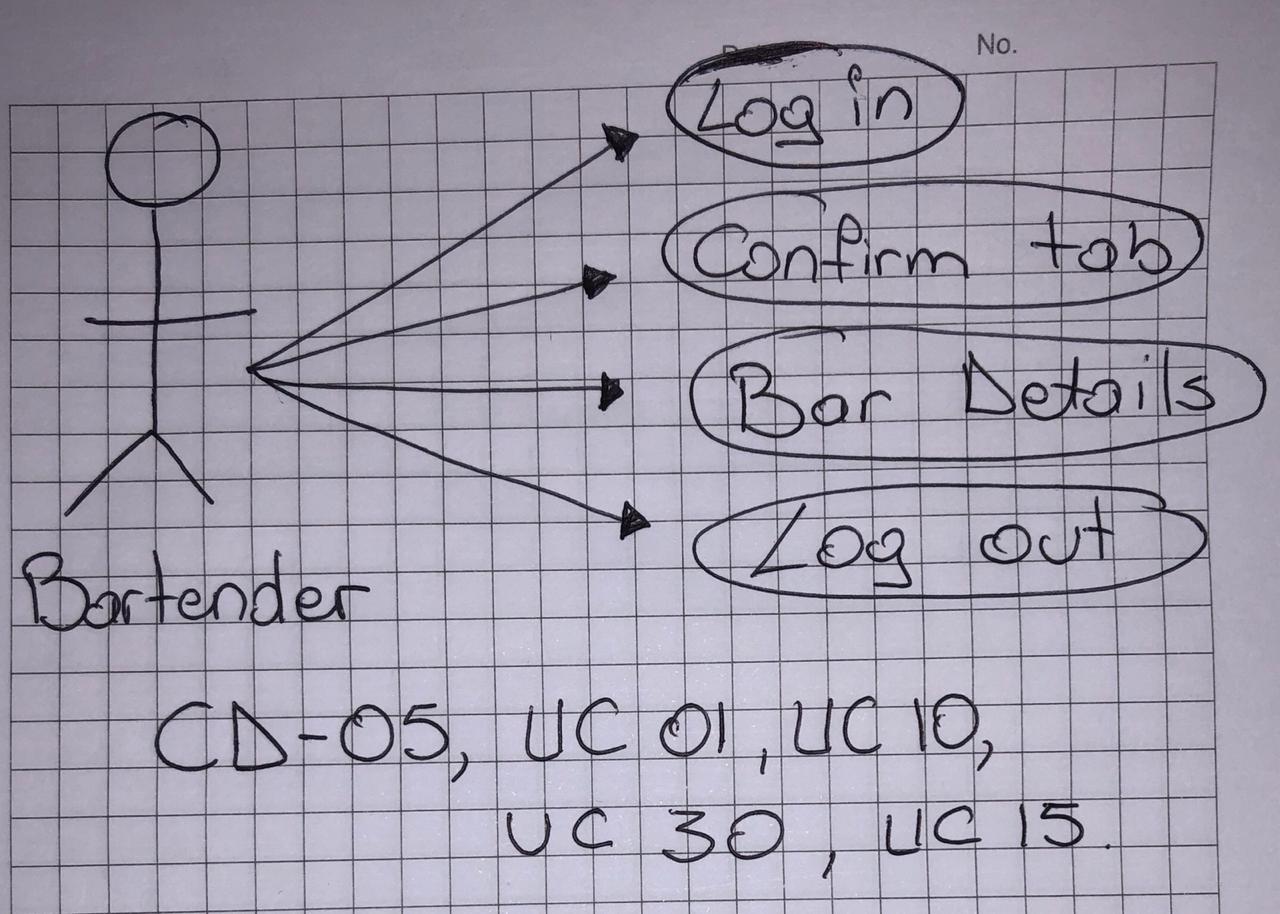 No.
Log in
Confirm tab
Bar Details
Log out
Bartender
CD-05, UC 01, UC 10,
UC 30, UC 15.